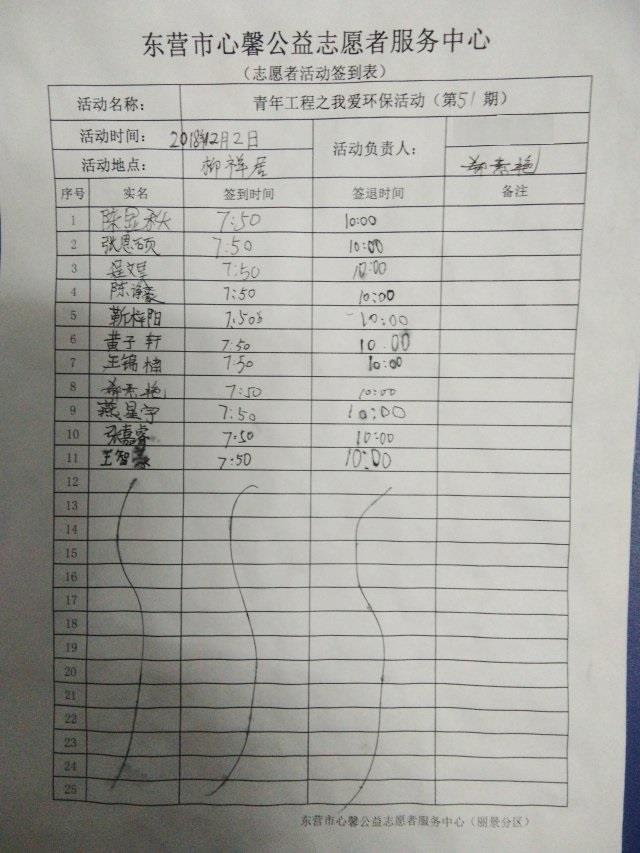 东营市心馨公益志愿者服务中心
（志愿者活动签到表）
活动名称： 青年工程之我爱环保活动（第51期）
活动时间： 2018年12月2日 活动负责人：
活动地点： 柳祥居
序号 实名 签到时间 签退时间 备注
1 陈显 7:50 10:00
2 张恩硕 7:50 10:00
3 7:50 10:00
4 陈 7:50 10:00
5 靳梓阳 7:50 10:00
6 黄子轩 7:50 10:00
7 王锦楠 7:50 10:00
8 7:50 10:00
9 燕星宇 7:50 10:00
10 张嘉睿 7:50 10:00
11 王智 7:50 10:00
12
13
14
15
16
17
18
19
20
21
22
23
24
25
东营市心馨公益志愿者服务中心（丽景分区）